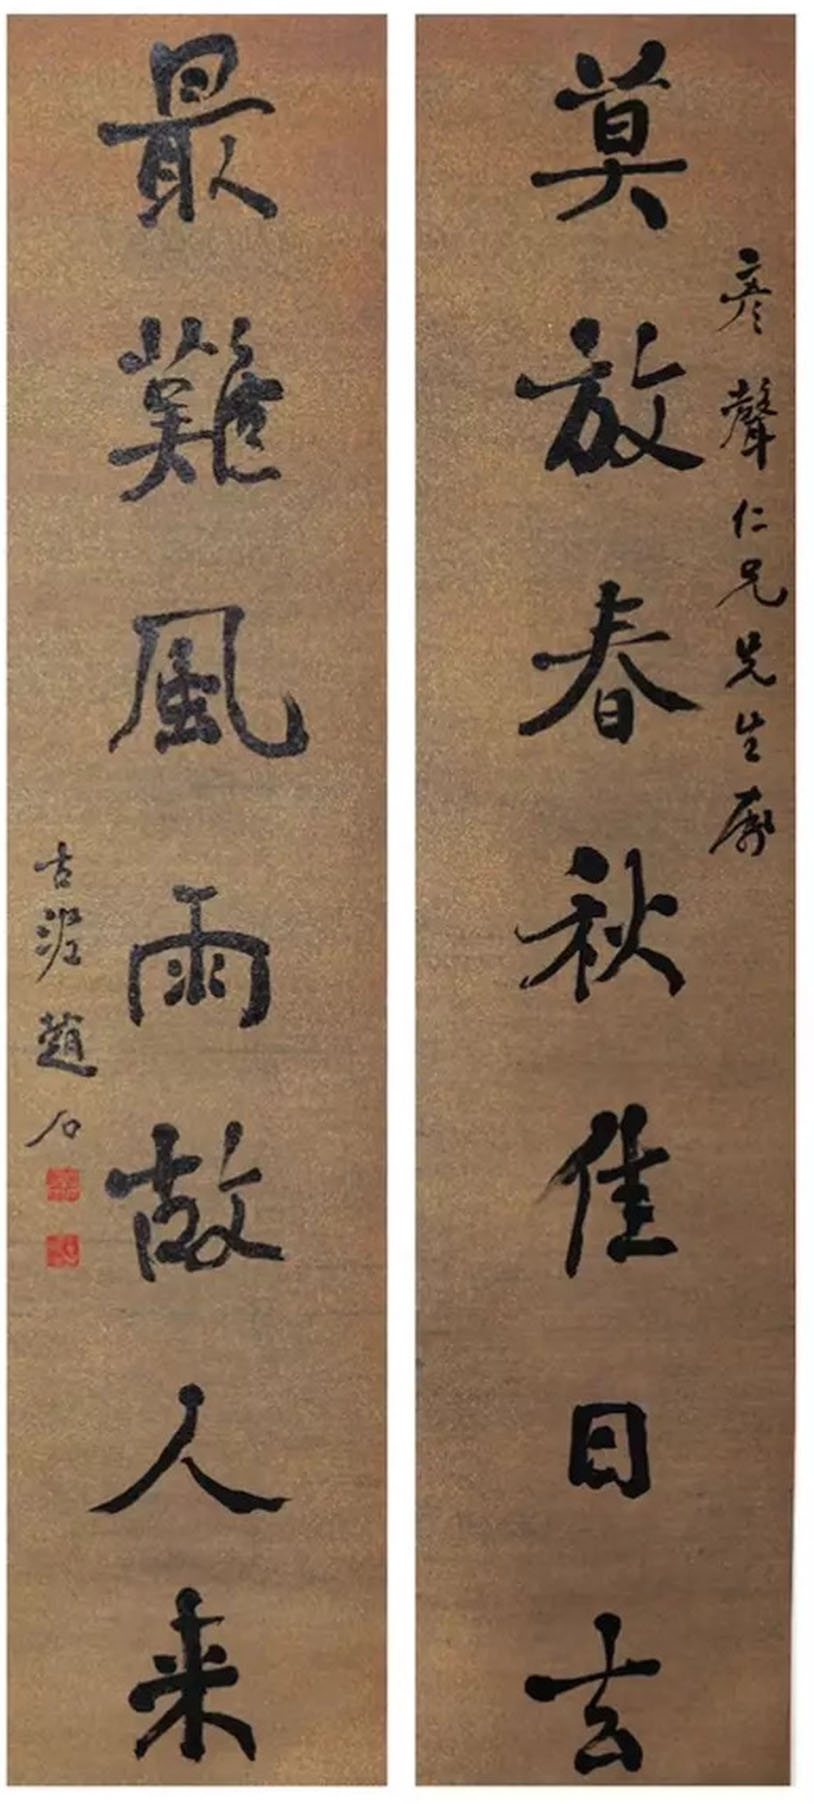 彦聲仁兄先生属
莫放春秋佳日去
最難風雨故人来
古泥趙石